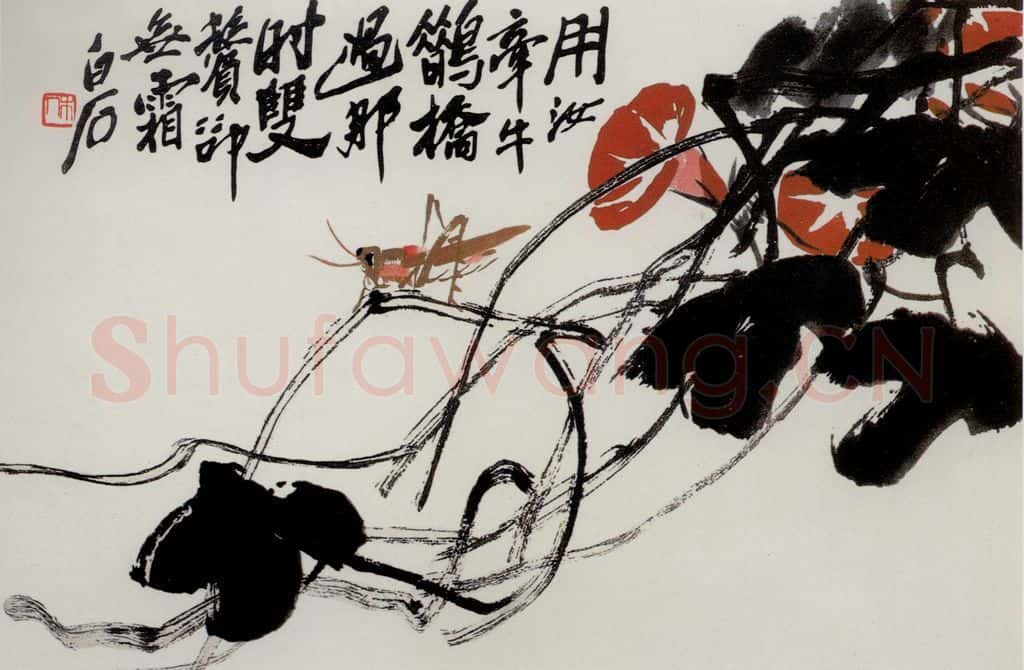 用汝
牽牛
鵲橋
過那
时雙
鬢卻
無霜
白石
木人
Shufawang.CN